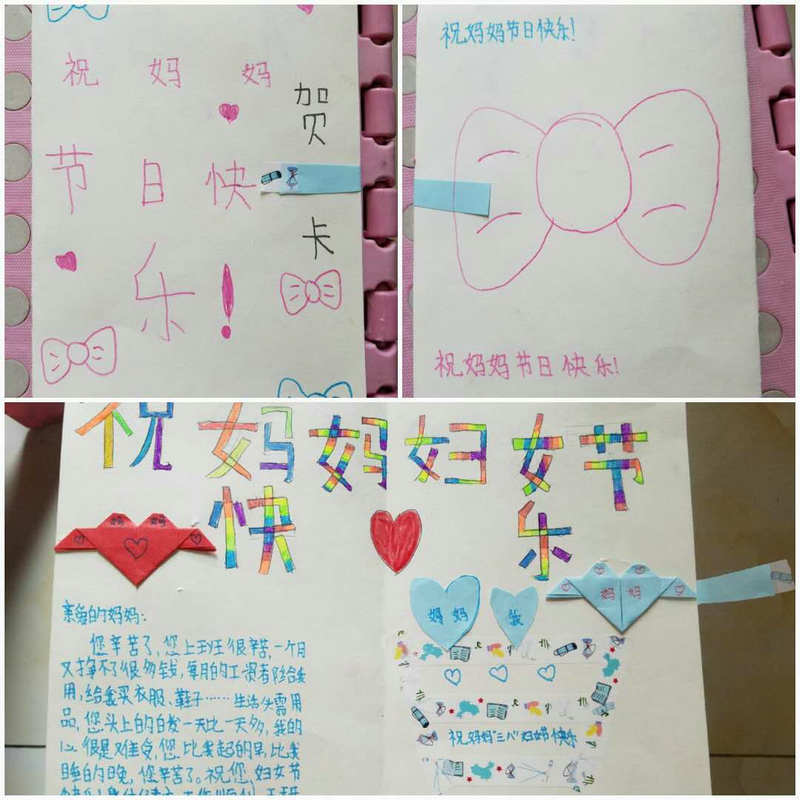 祝 妈 妈
节 日 快
乐!
贺
卡
祝妈妈节日快乐!
祝妈妈节日快乐!
祝妈妈妇女节
快 乐
妈 妈
亲爱的妈妈:
您辛苦了,您上班很辛苦,一个月
又挣不了很多钱,每月的工资都给我
用,给我买衣服、鞋子……生活必需用
品,您头上的白发一天比一天多,我的
心很是难受,您比我起的早,比我
睡的晚,您辛苦了。祝您,妇女节
快乐!身体健康,工作顺利,
妈妈 我
妈 妈
祝妈妈"三八"妇女节快乐